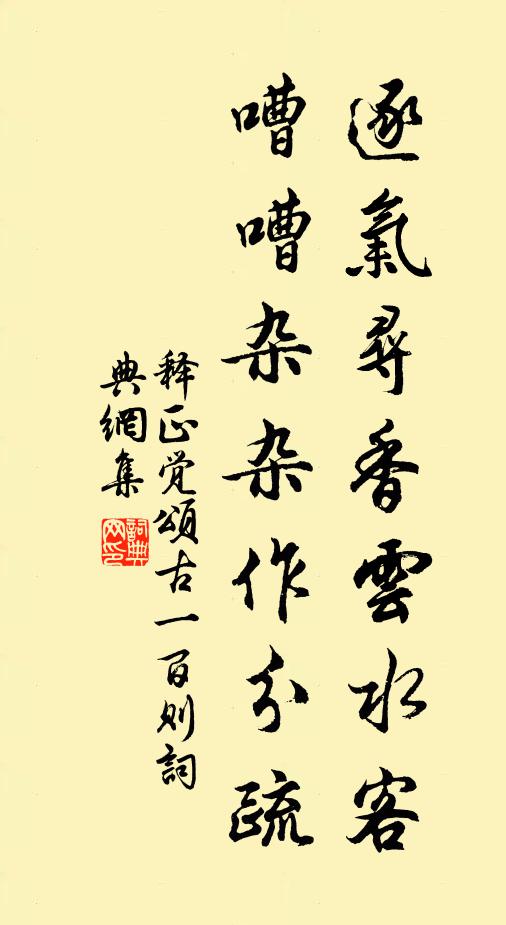 逐氣尋香雲水客
嘈嘈杂杂作分疏
释正觉頌古一百则詞
典網集
詞典网印